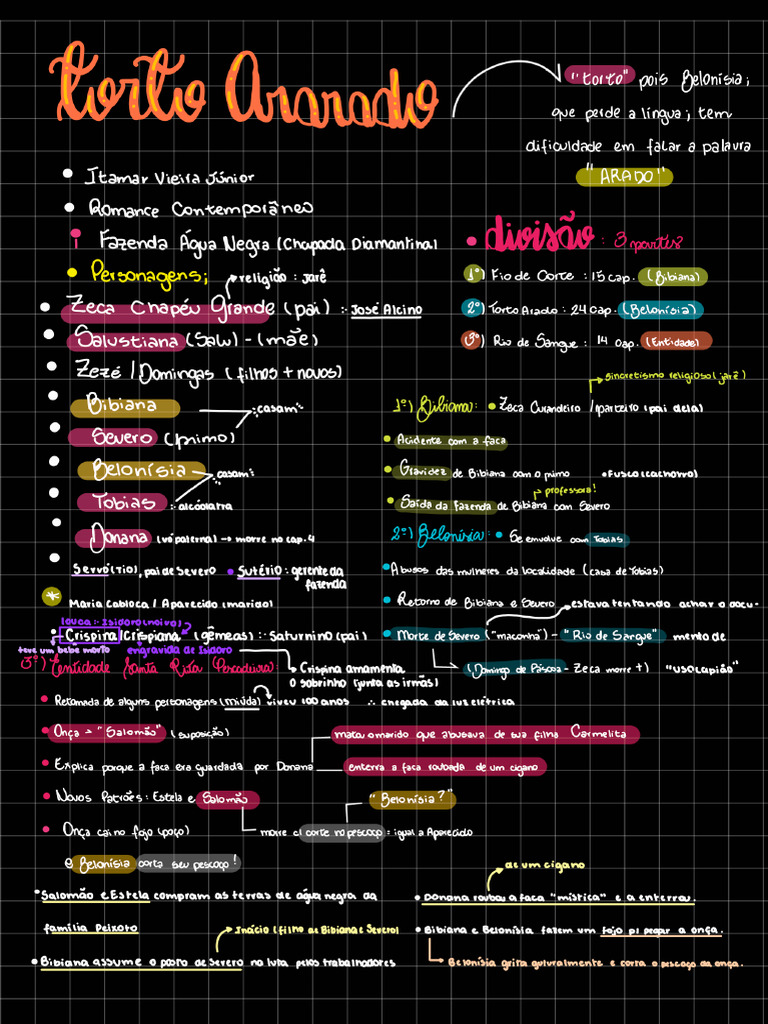 torto Ararado
"torto" pois Belonísia;
que perde a língua; tem
dificuldade em falar a palavra
"ARADO"
• Itamar Vieira Júnior
• Romance Contemporâneo
• Fazenda Água Negra (Chapada Diamantina)
• Personagens;
religião: jarê
• Zeca Chapéu Grande (pai) :- José Alcino
• Salustiana (Salu) - (mãe)
• Zezé / Domingas (filhos + novos)
• Bibiana
:casam:
• Severo (primo)
• Belonísia
:casam:
• Tobias :. alcóolatra
• Donana (vó paterna) → morre no cap. 4
• Servó (tio), pai de Severo • Sutério : gerente da
fazenda
* Maria Cabloca / Aparecido (marido)
louca :- Isidoro (noivo)
Crispina/Crispiana (gêmeas) :- Saturnino (pai)
teve um bebe morto engravida de Isidoro
• divisão: 3 partes
1º) Fio de Corte : 15 cap. (Bibiana)
2º) Torto Arado : 24 cap. (Belonísia)
3º) Rio de Sangue : 14 cap. (Entidade)
sincretismo religioso (jarê)
1º) Bibiana: • Zeca Curandeiro /parteiro (pai dela)
• Acidente com a faca
• Gravidez de Bibiana com o primo • Fusco (cachorro)
professora!
• Saída da fazenda de Bibiana com Severo
2º) Belonísia: • Se envolve com Tobias
• Abusos das mulheres da localidade (casa de Tobias)
• Retorno de Bibiana e Severo estava tentando achar o docu-
• Morte de Severo ("maconha") - "Rio de Sangue" mento de
(Domingo de Páscoa - Zeca morre +) "usocapião"
3º) Entidade Santa Rita Pescadeira: • Crispina amamenta
o sobrinho (junta as irmãs)
• Retomada de alguns personagens (miúda) viveu 100 anos ∴ chegada da luz elétrica
• Onça → "Salomão" (suposição) matou o marido que abusava de sua filha Carmelita
• Explica porque a faca era guardada por Donana enterra a faca roubada de um cigano
• Novos Patrões: Estela e Salomão "Belonísia?"
• Onça cai no fojo (poço) morre c/ corte no pescoço = igual a Aparecido
e Belonísia corta seu pescoço!
• Salomão e Estela compram as terras de água negra da
família Peixoto
Inácio (filho de Bibiana e Severo)
• Bibiana assume o posto de Severo na luta pelos trabalhadores
de um cigano
• Donana roubou a faca "mística" e a enterrou.
• Bibiana e Belonísia fazem um fojo p/ pegar a onça.
Belonísia grita guturalmente e corta o pescoço da onça.